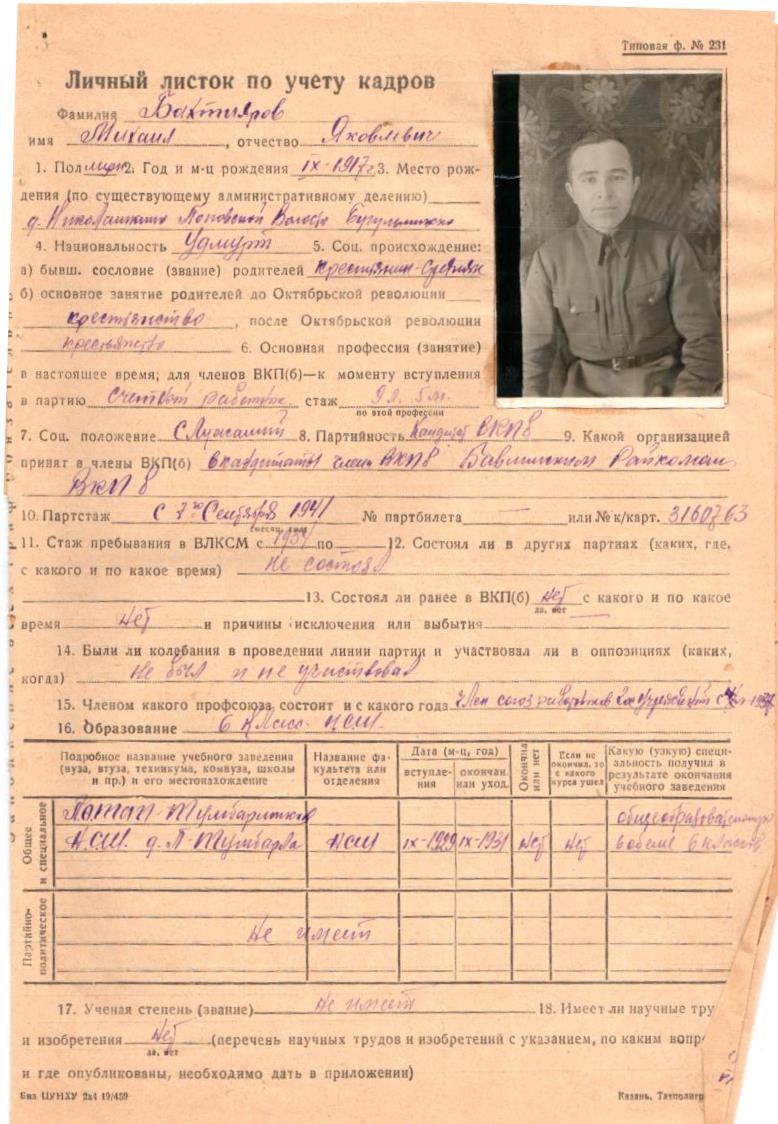 Типовая ф. № 231
Личный листок по учету кадров
Фамилия Бахтияров
имя Михаил, отчество Яковлевич
1. Пол муж 2. Год и м-ц рождения IX-1917 г. 3. Место рож-
дения (по существующему административному делению)
д. Николашкино Поповской Волости
4. Национальность Удмурт 5. Соц. происхождение:
а) бывш. сословие (звание) родителей крестьянин-средняк
б) основное занятие родителей до Октябрьской революции
крестьянство, после Октябрьской революции
крестьянство 6. Основная профессия (занятие)
в настоящее время; для членов ВКП(б)—к моменту вступления
в партию счетный работник стаж 9 л. 5 м.
по этой профессии
7. Соц. положение служащий 8. Партийность Кандидат ВКПб 9. Какой организацией
принят в члены ВКП(б) в кандидаты член ВКПб Бавлинским Райкомом
ВКПб
10. Партстаж с 7го Сентября 1941 № партбилета — или № к/карт. 3160763
(месяц, год)
11. Стаж пребывания в ВЛКСМ с по 12. Состоял ли в других партиях (каких, где,
с какого и по какое время) не состоял
13. Состоял ли ранее в ВКП(б) нет с какого и по какое
да, нет
время нет и причины исключения или выбытия
14. Были ли колебания в проведении линии партии и участвовал ли в оппозициях (каких,
когда) не был и не участвовал
15. Членом какого профсоюза состоит и с какого года член союз работников
16. Образование 6 класс НСШ
Подробное название учебного заведения (вуза, втуза, техникума, комвуза, школы и пр.) и его местонахождение
Название факультета или отделения
Дата (м-ц, год)
вступления
окончан. или уход.
Окончил или нет
Если не окончил, то с какого курса ушел
Какую (узкую) специальность получил в результате окончания учебного заведения
Общее и специальное
НСШ д. П-Тумбарла НСШ IX-1929 IX-1931 нет нет в объеме 6 классов
Партийно-политическое
Не имеет
17. Ученая степень (звание) Не имеет 18. Имеет ли научные тру
и изобретения нет (перечень научных трудов и изобретений с указанием, по каким вопр
да, нет
и где опубликованы, необходимо дать в приложении)
Биз ЦУНХУ 2в4 19/459
Казань, Татполигр